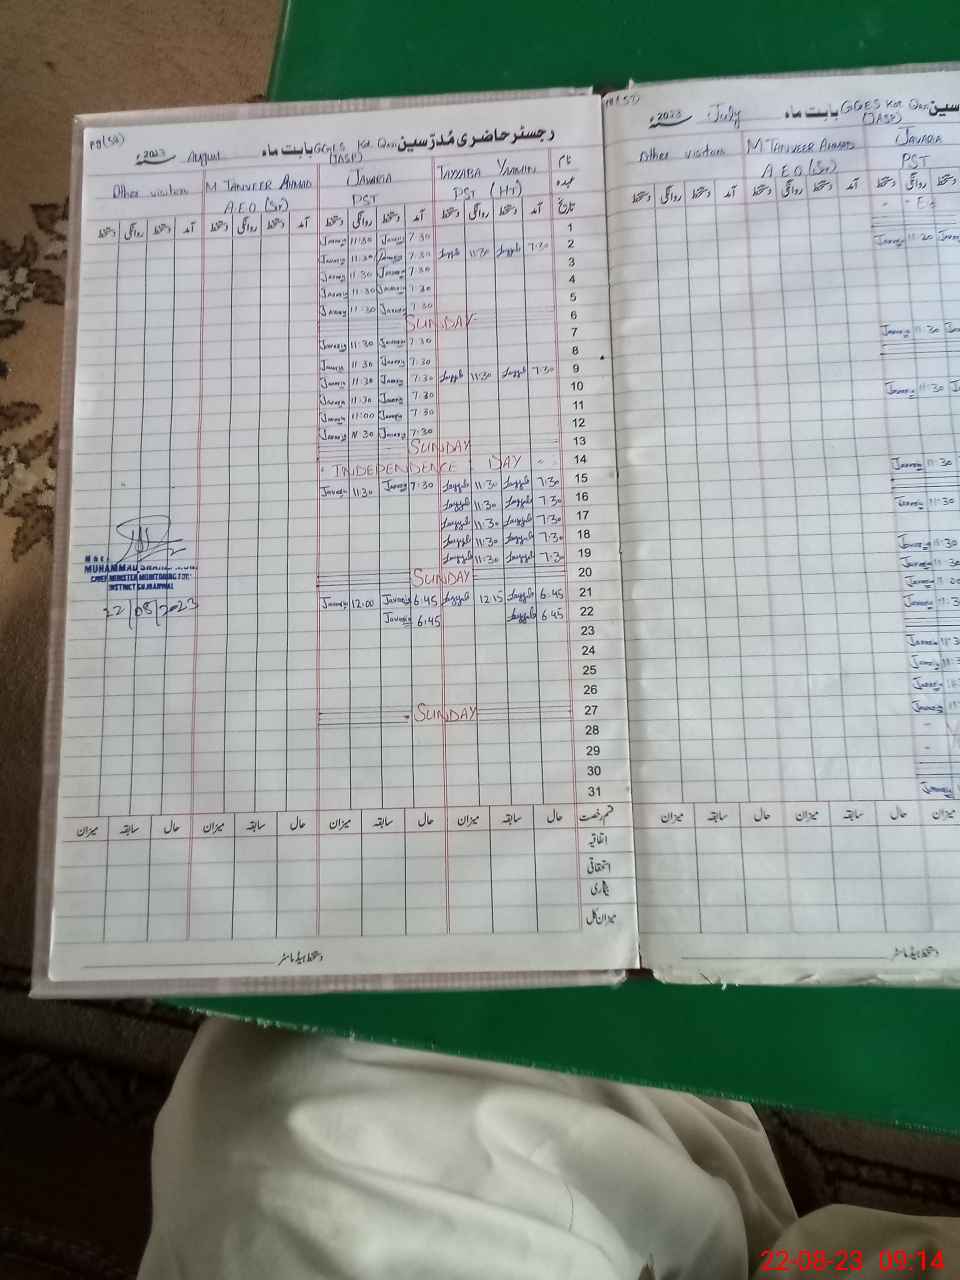 pg(58)
رجسٹر حاضری مُدرّسین GGES Kot Qazi بابت ماہ August 2023ء
(JASP)
نام TAYYABA YASMIN JAVARIA M TANVEER AHMAD Other visitors
عہدہ PST (HT) PST A.E.O (Sr)
تاریخ آمد دستخط روانگی دستخط آمد دستخط روانگی دستخط آمد دستخط روانگی دستخط آمد دستخط روانگی دستخط
1 7:30 Javaria 11:30 Javaria
2 7:30 Tayyaba 11:30 Tayyaba 7:30 Javaria 11:30 Javaria
3 7:30 Javaria 11:30 Javaria
4 7:30 Javaria 11:30 Javaria
5 7:30 Javaria 11:30 Javaria
6 SUNDAY
7 7:30 Javaria 11:30 Javaria
8 7:30 Javaria 11:30 Javaria
9 7:30 Tayyaba 11:30 Tayyaba 7:30 Javaria 11:30 Javaria
10 7:30 Javaria 11:30 Javaria
11 7:30 Javaria 11:00 Javaria
12 7:30 Javaria 11:30 Javaria
13 SUNDAY
14 INDEPENDENCE DAY
15 7:30 Tayyaba 11:30 Tayyaba 7:30 Javaria 11:30 Javaria
16 7:30 Tayyaba 11:30 Tayyaba
17 7:30 Tayyaba 11:30 Tayyaba
18 7:30 Tayyaba 11:30 Tayyaba
19 7:30 Tayyaba 11:30 Tayyaba
20 SUNDAY
21 6:45 Tayyaba 12:15 Tayyaba 6:45 Javaria 12:00 Javaria
22 6:45 Tayyaba 6:45 Javaria
23
24
25
26
27 SUNDAY
28
29
30
31
MUHAMMAD
CHIEF MINISTER MONITORING FORCE
DISTRICT GUJRANWALA
22/08/2023
قسم رخصت حال سابقہ میزان حال سابقہ میزان حال سابقہ میزان حال سابقہ میزان
اتفاقیہ
استحقاقی
بیماری
میزان کل
دستخط ہیڈ ماسٹر
(57)
مدرّسین GGES Kot Qazi بابت ماہ July 2023ء
(JASP)
JAVARIA M TANVEER AHMAD Other visitors
PST A.E.O (Sr)
دستخط روانگی دستخط آمد دستخط روانگی دستخط آمد دستخط روانگی دستخط
11:20 Javaria
11:30 Javaria
11:30 Javaria
11:30 Javaria
11:30 Javaria
11:30 Javaria
11:30 Javaria
11:00 Javaria
11:3 Javaria
11:3 Javaria
11:3 Javaria
Javaria
Javaria
Javaria
میزان حال سابقہ میزان حال سابقہ میزان
دستخط ہیڈ ماسٹر
22-08-23 09:14